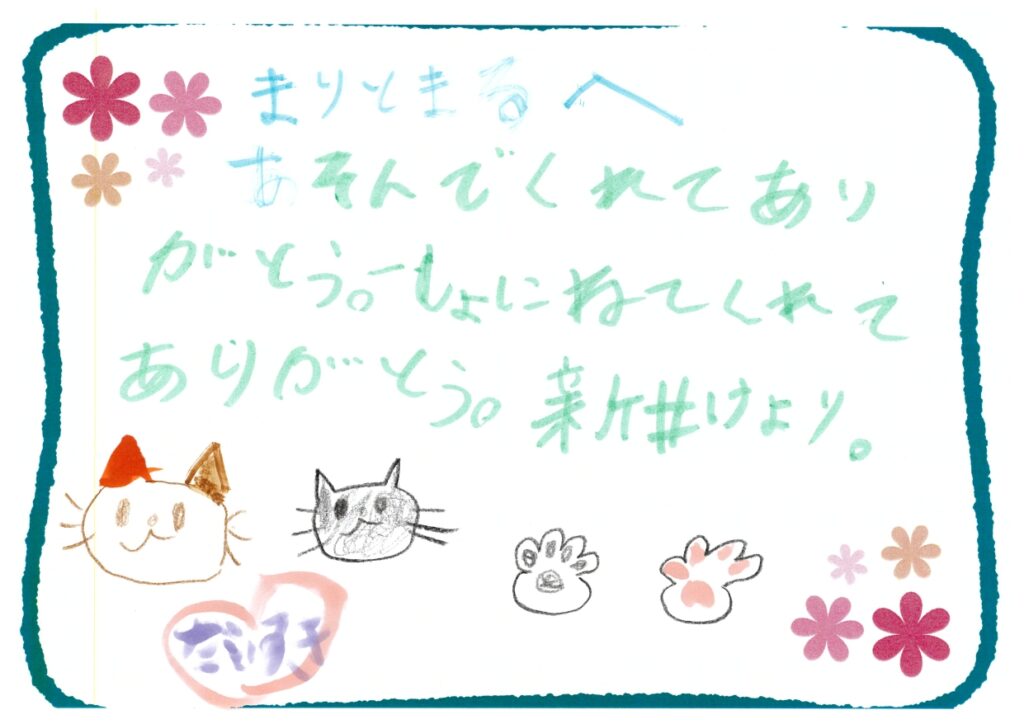 まりとまるへ
あそんでくれてあり
がとう。一しょにねてくれて
ありがとう。新井けより。
だいすき